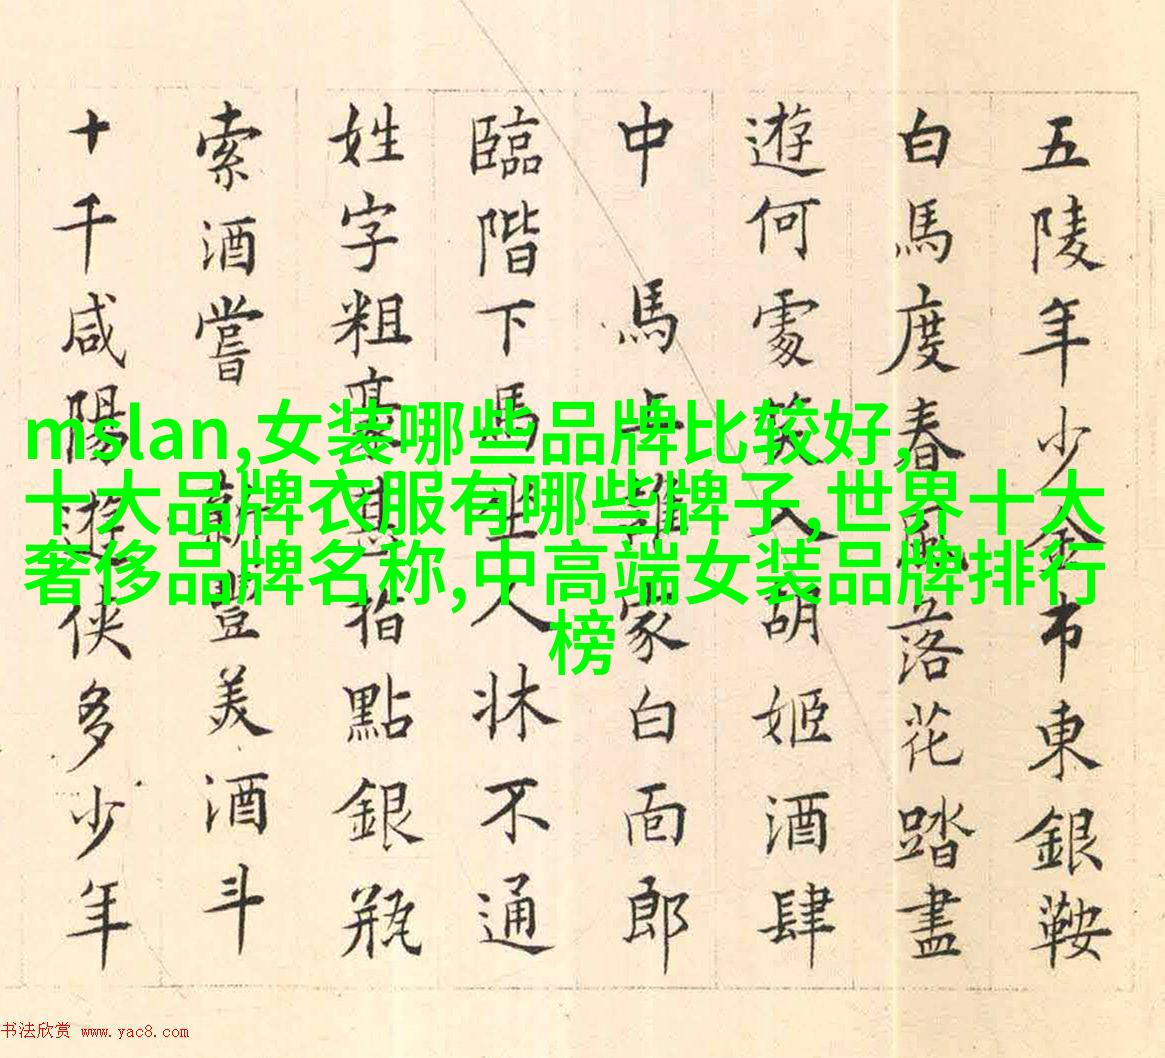 五陵年少金市東銀鞍
白馬度春風落花踏盡
遊何處笑入胡姬酒肆
中 馬上誰家白面郎
臨階下馬坐人牀不通
姓字粗豪甚指點銀瓶
索酒嘗 新豐美酒斗
十千咸陽遊俠多少年
mslan,女装哪些品牌比较好,
十大品牌衣服有哪些牌子,世界十大
奢侈品牌名称,中高端女装品牌排行
榜
书法欣赏 www.yac8.com